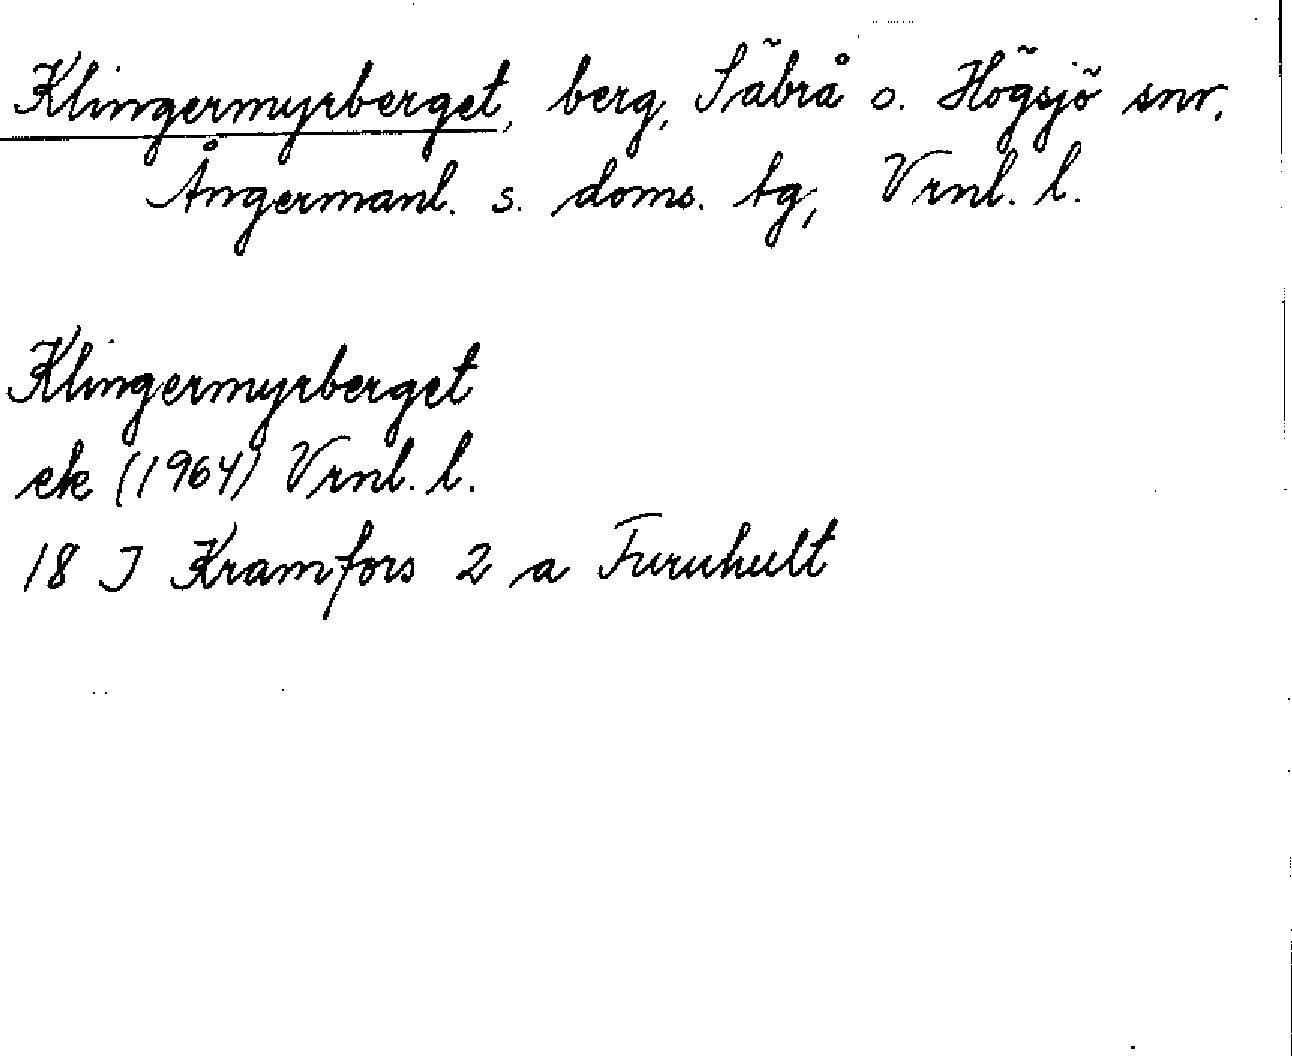 Klingermyrberget, berg, Säbrå o. Högsjö snr,
Ångermanl. s. doms. tg, Vrnl. l.
Klingermyrberget
ek (1964) Vrnl. l.
18 J Kramfors 2 a Furuhult